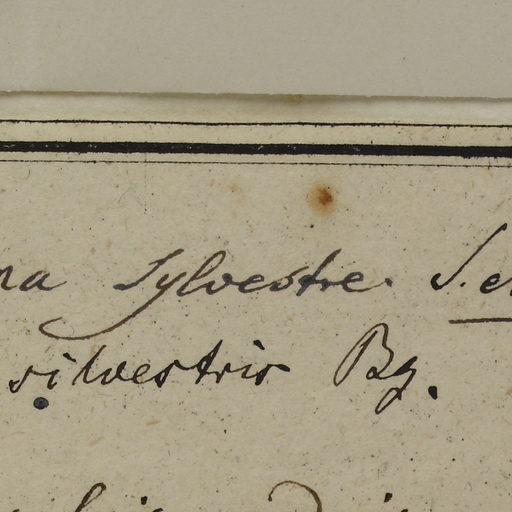 na sylvestre. S. e
silvestris Bg.